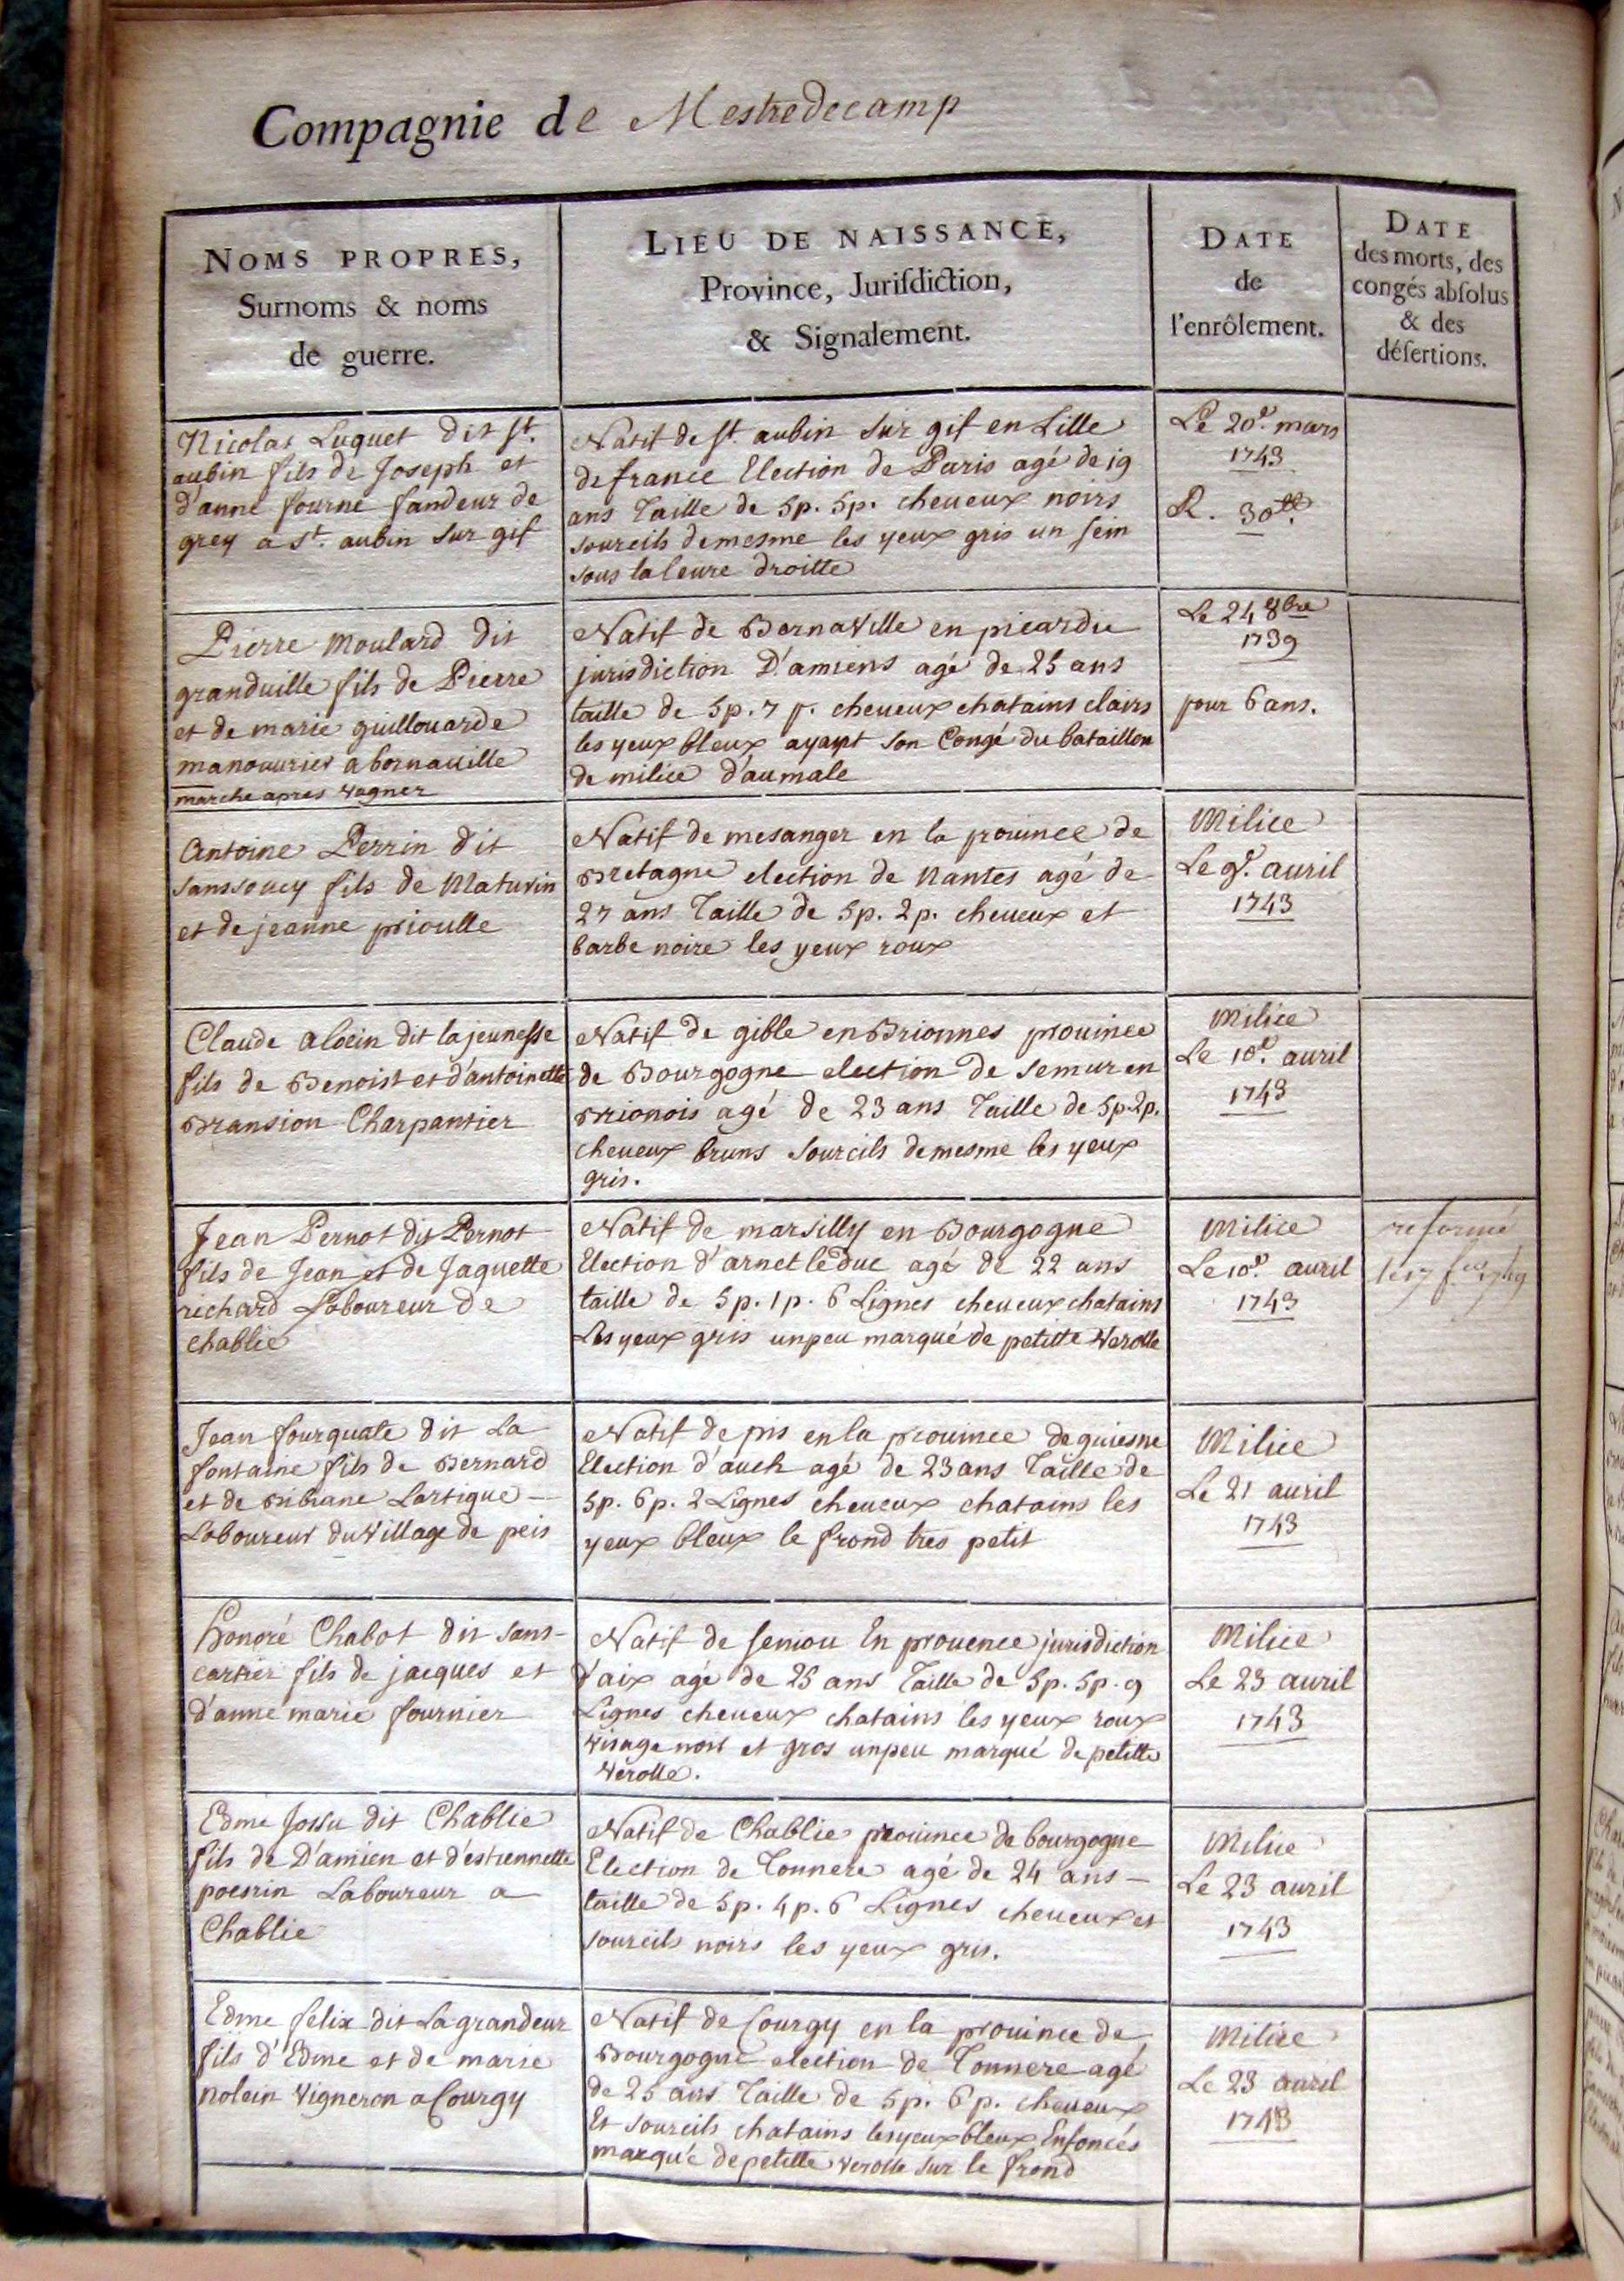 Compagnie de Mestredecamp
NOMS PROPRES,
Surnoms & noms
de guerre.
LIEU DE NAISSANCE,
Province, Jurisdiction,
& Signalement.
DATE
de
l'enrôlement.
DATE
des morts, des
congés absolus
& des
désertions.
Nicolas Luquet dit st.
aubin fils de Joseph et
d'anne fourné fandeur de
grey a st. aubin sur gif
Natif de st. aubin sur gif en Lille
de france Election de Paris agé de 19
ans Taille de 5p. 5p. cheueux noirs
sourcils demesme les yeux gris un sein
sous la leure droitte
Le 20e. mars
1743
R. 30tt.
Pierre Moulard dit
granduille fils de Pierre
et de marie guillouarde
manouurier a bornauille
marche apres Wagner
Natif de BernaVille en picardie
jurisdiction D'amiens agé de 25 ans
taille de 5p. 7 p. cheueux chatains clairs
les yeux bleux ayant son Congé du bataillon
de milice d'aumale
Le 24 8bre
1739
pour 6 ans.
Antoine Perrin dit
sanssoucy fils de Maturin
et de jeanne prioulle
Natif de mesanger en la prouince de
Bretagne election de Nantes agé de
27 ans Taille de 5p. 2p. cheueux et
barbe noire les yeux roux
Milice
Le 9e. auril
1743
Claude aloin dit la jeunesse
fils de Benoist et d'antoinette
Bransion Charpantier
Natif de gible en Brionnes prouince
de Bourgogne election de semur en
Brionois agé de 23 ans Taille de 5p. 2p.
cheueux bruns sourcils demesme les yeux
gris.
Milice
Le 10e. auril
1743
Jean Pernot dit Pernot
fils de Jean et de Jaquette
richard Laboureur de
chablie
Natif de marsilly en Bourgogne
Election d'arnet le duc agé de 22 ans
taille de 5p. 1p. 6 Lignes cheueux chatains
Les yeux gris unpeu marqué de petitte Verolle
Milice
Le 10e. auril
1743
reformé
le 17 fer 1749
Jean fourquate dit La
fontaine fils de Bernard
et de Bibiane Lartigue
Laboureur du Village de peis
Natif de pis en la prouince de guiesne
Election d'auch agé de 23 ans Taille de
5p. 6p. 2 Lignes cheueux chatains les
yeux bleux le frond tres petit
Milice
Le 21 auril
1743
Honoré Chabot dit sans-
cartier fils de jacques et
d'anne marie fournier
Natif de seniou En prouence jurisdiction
d'aix agé de 25 ans Taille de 5p. 5p. 9
Lignes cheueux chatains les yeux roux
visage noir et gros unpeu marqué de petitte
Verolle.
Milice
Le 23 auril
1743
Edme Jossu dit Chablie
fils de D'amien et d'estiennette
poesrin Laboureur a
Chablie
Natif de Chablie prouince de bourgogne
Election de Tonnere agé de 24 ans
taille de 5p. 4p. 6 Lignes cheueux et
sourcils noirs les yeux gris.
Milice
Le 23 auril
1743
Edme felix dit La grandeur
fils d'Edme et de marie
nolein Vigneron a Courgy
Natif de Courgy en la prouince de
Bourgogne election de Tonnere agé
de 25 ans Taille de 5p. 6p. cheueux
Et sourcils chatains les yeux bleux Enfoncés
marqué de petitte verolle sur le frond
Milice
Le 23 auril
1743